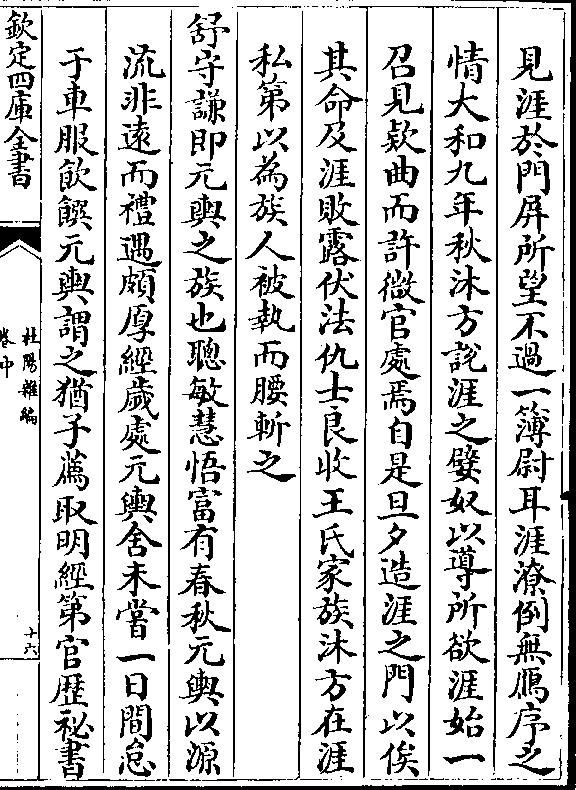 見涯於門屏所望不過一簿尉耳涯潦倒無鴈序之
情大和九年秋沐方說涯之嬖奴以導所欲涯始一
召見款曲而許微官處焉自是旦夕造涯之門以俟
其命及涯敗露伏法仇士良收王氏家族沐方在涯
私第以為族人被執而腰斬之
舒守謙即元輿之族也聰敏慧悟富有春秋元輿以源
流非遠而禮遇頗厚經歲處元輿舍未嘗一日間怠
于車服飲饌元輿謂之猶子薦取明經第官歷祕書
欽定四庫全書
杜陽雜編
卷中
十六